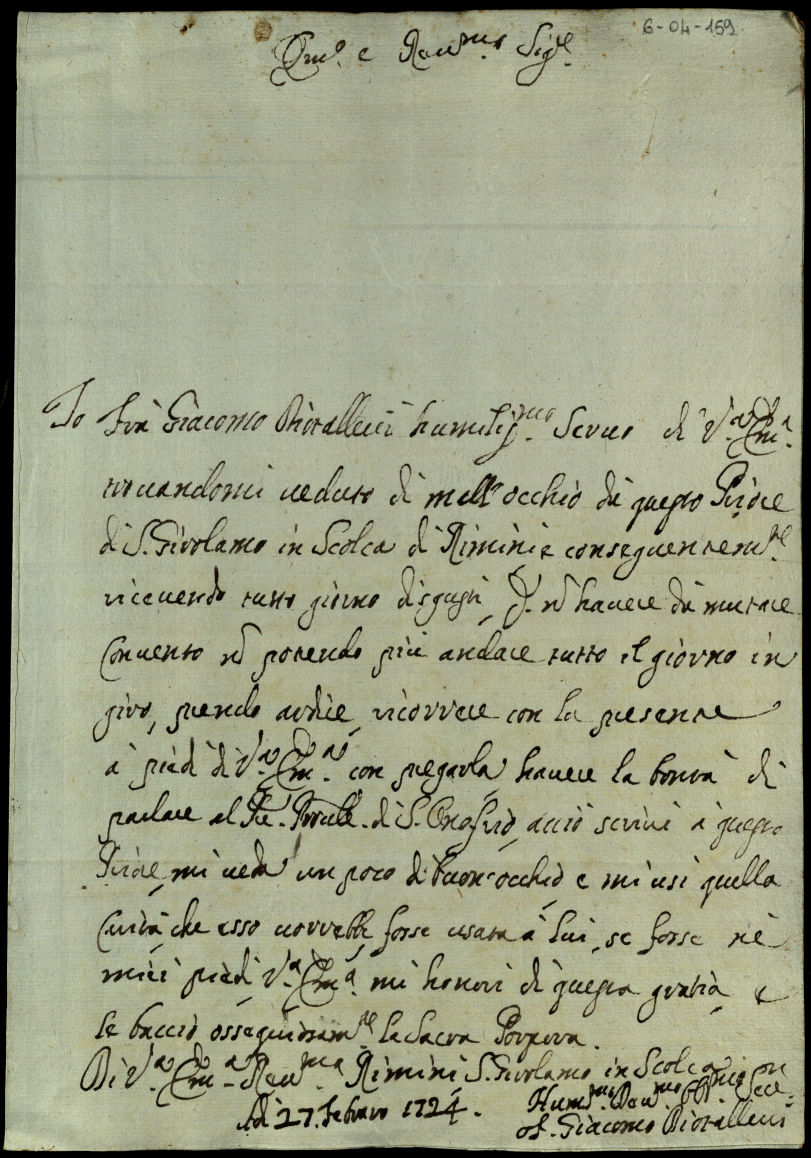 6-04-159
Em.o e Reu.mo Sig.re
Io Frà Giacomo Bioralleui humiliss.mo Seruo di V.a Em.a
trouandomi ueduto di mall'occhio da questo Priore
di S. Girolamo in Scolca di Rimini e conseguentem.te
riceuendo tutto giorno disgusti, P. nõ hauere da mutare
Conuento nõ potendo più andare tutto il giorno in
giro, prendo ardire, ricorrere con la presente
à piedi di V.a Em.a con pregarla hauere la bontà di
parlare al Pre. Proule. di S. Onofrio, acciò scriui à questo
Priore, mi ueda un poco di buon'occhio e mi usi quella
Carità, che esso uorrebbe forse usata à lui, se fosse nè
miei piedi, V.a Em.a mi honori di questa gratia, e
le baccio ossequiosam.te la Sacra Porpora.
Di V.a Em.a Reu.ma Rimini S. Girolamo in Scolca
Adi 27. Febraro 1724. Hum.mo Deu.mo
f. Giacomo Bioralleui